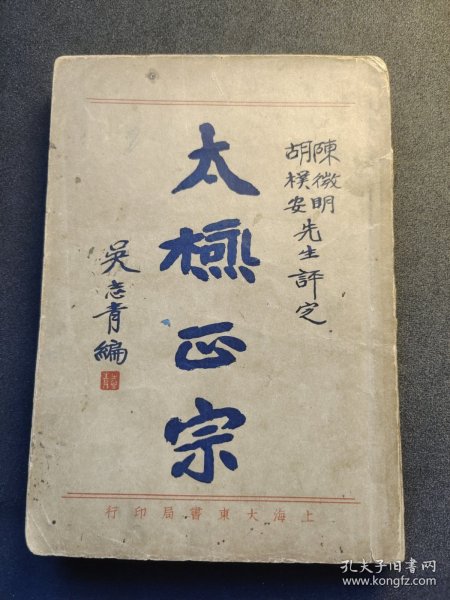 陳微明
胡樸安
先生評定
太極正宗
吳志青編
上海大東書局印行
孔夫子旧书网
www.kongfz.com